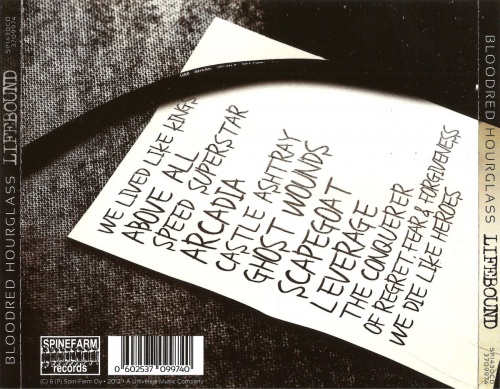 BLOODRED HOURGLASS LIFEBOUND
SPI430CD
3709974
WE LIVED LIKE KINGS
ABOVE ALL
SPEED SUPERSTAR
ARCADIA
CASTLE ASHTRAY
GHOST WOUNDS
SCAPEGOAT
LEVERAGE
THE CONQUERER
OF REGRET, FEAR & FORGIVENESS
WE DIE LIKE HEROES
SPINEFARM
records
0 602537 099740
(C) & (P) Spin-Farm Oy • 2012 • A Universal Music Company
BLOODRED HOURGLASS LIFEBOUND
SPI430CD
3709974